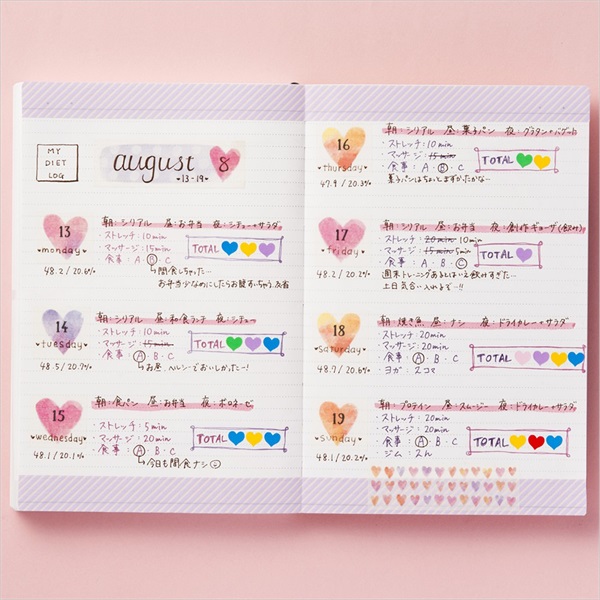 MY
DIET
LOG
august 8
•13-19•
13
monday
48.2 / 20.6%
朝:シリアル 昼:お弁当 夜:シチュー+サラダ
・ストレッチ:10min
・マッサージ:15min
・食事:A・B・C
TOTAL
↳間食しちゃった…
お弁当少なめにしたらお腹すいちゃう。反省
14
tuesday
48.5 / 20.7%
朝:シリアル 昼:和食ランチ 夜:シチュー
・ストレッチ:10min
・マッサージ:15min
・食事:A・B・C
TOTAL
↳お昼、ヘルシーでおいしかったー!
15
wednesday
48.1 / 20.1%
朝:食パン 昼:お弁当 夜:ボロネーゼ
・ストレッチ:5min
・マッサージ:20min
・食事:A・B・C
TOTAL
↳今日も間食ナシ
16
thursday
47.9 / 20.3%
朝:シリアル 昼:菓子パン 夜:グラタン+バゲット
・ストレッチ:10min
・マッサージ:15min
・食事:A・B・C
TOTAL
菓子パンはちょっとまずかたかな…
17
friday
48.2 / 20.2%
朝:シリアル 昼:お弁当 夜:創作ギョーザ(飲み)
・ストレッチ:20min 10min
・マッサージ:15min 5min
・食事:A・B・C
TOTAL
週末トレーニングあるとはいえ飲みすぎた…
土日気合い入れるぞー!!
18
saturday
48.7 / 20.6%
朝:焼き魚 昼:ナシ 夜:ドライカレー+サラダ
・ストレッチ:20min
・マッサージ:20min
・食事:A・B・C
・ヨガ:2コマ
TOTAL
19
sunday
48.1 / 20.2%
朝:プロテイン 昼:スムージー 夜:ドライカレー+サラダ
・ストレッチ:20min
・マッサージ:20min
・食事:A・B・C
・ジム:
TOTAL